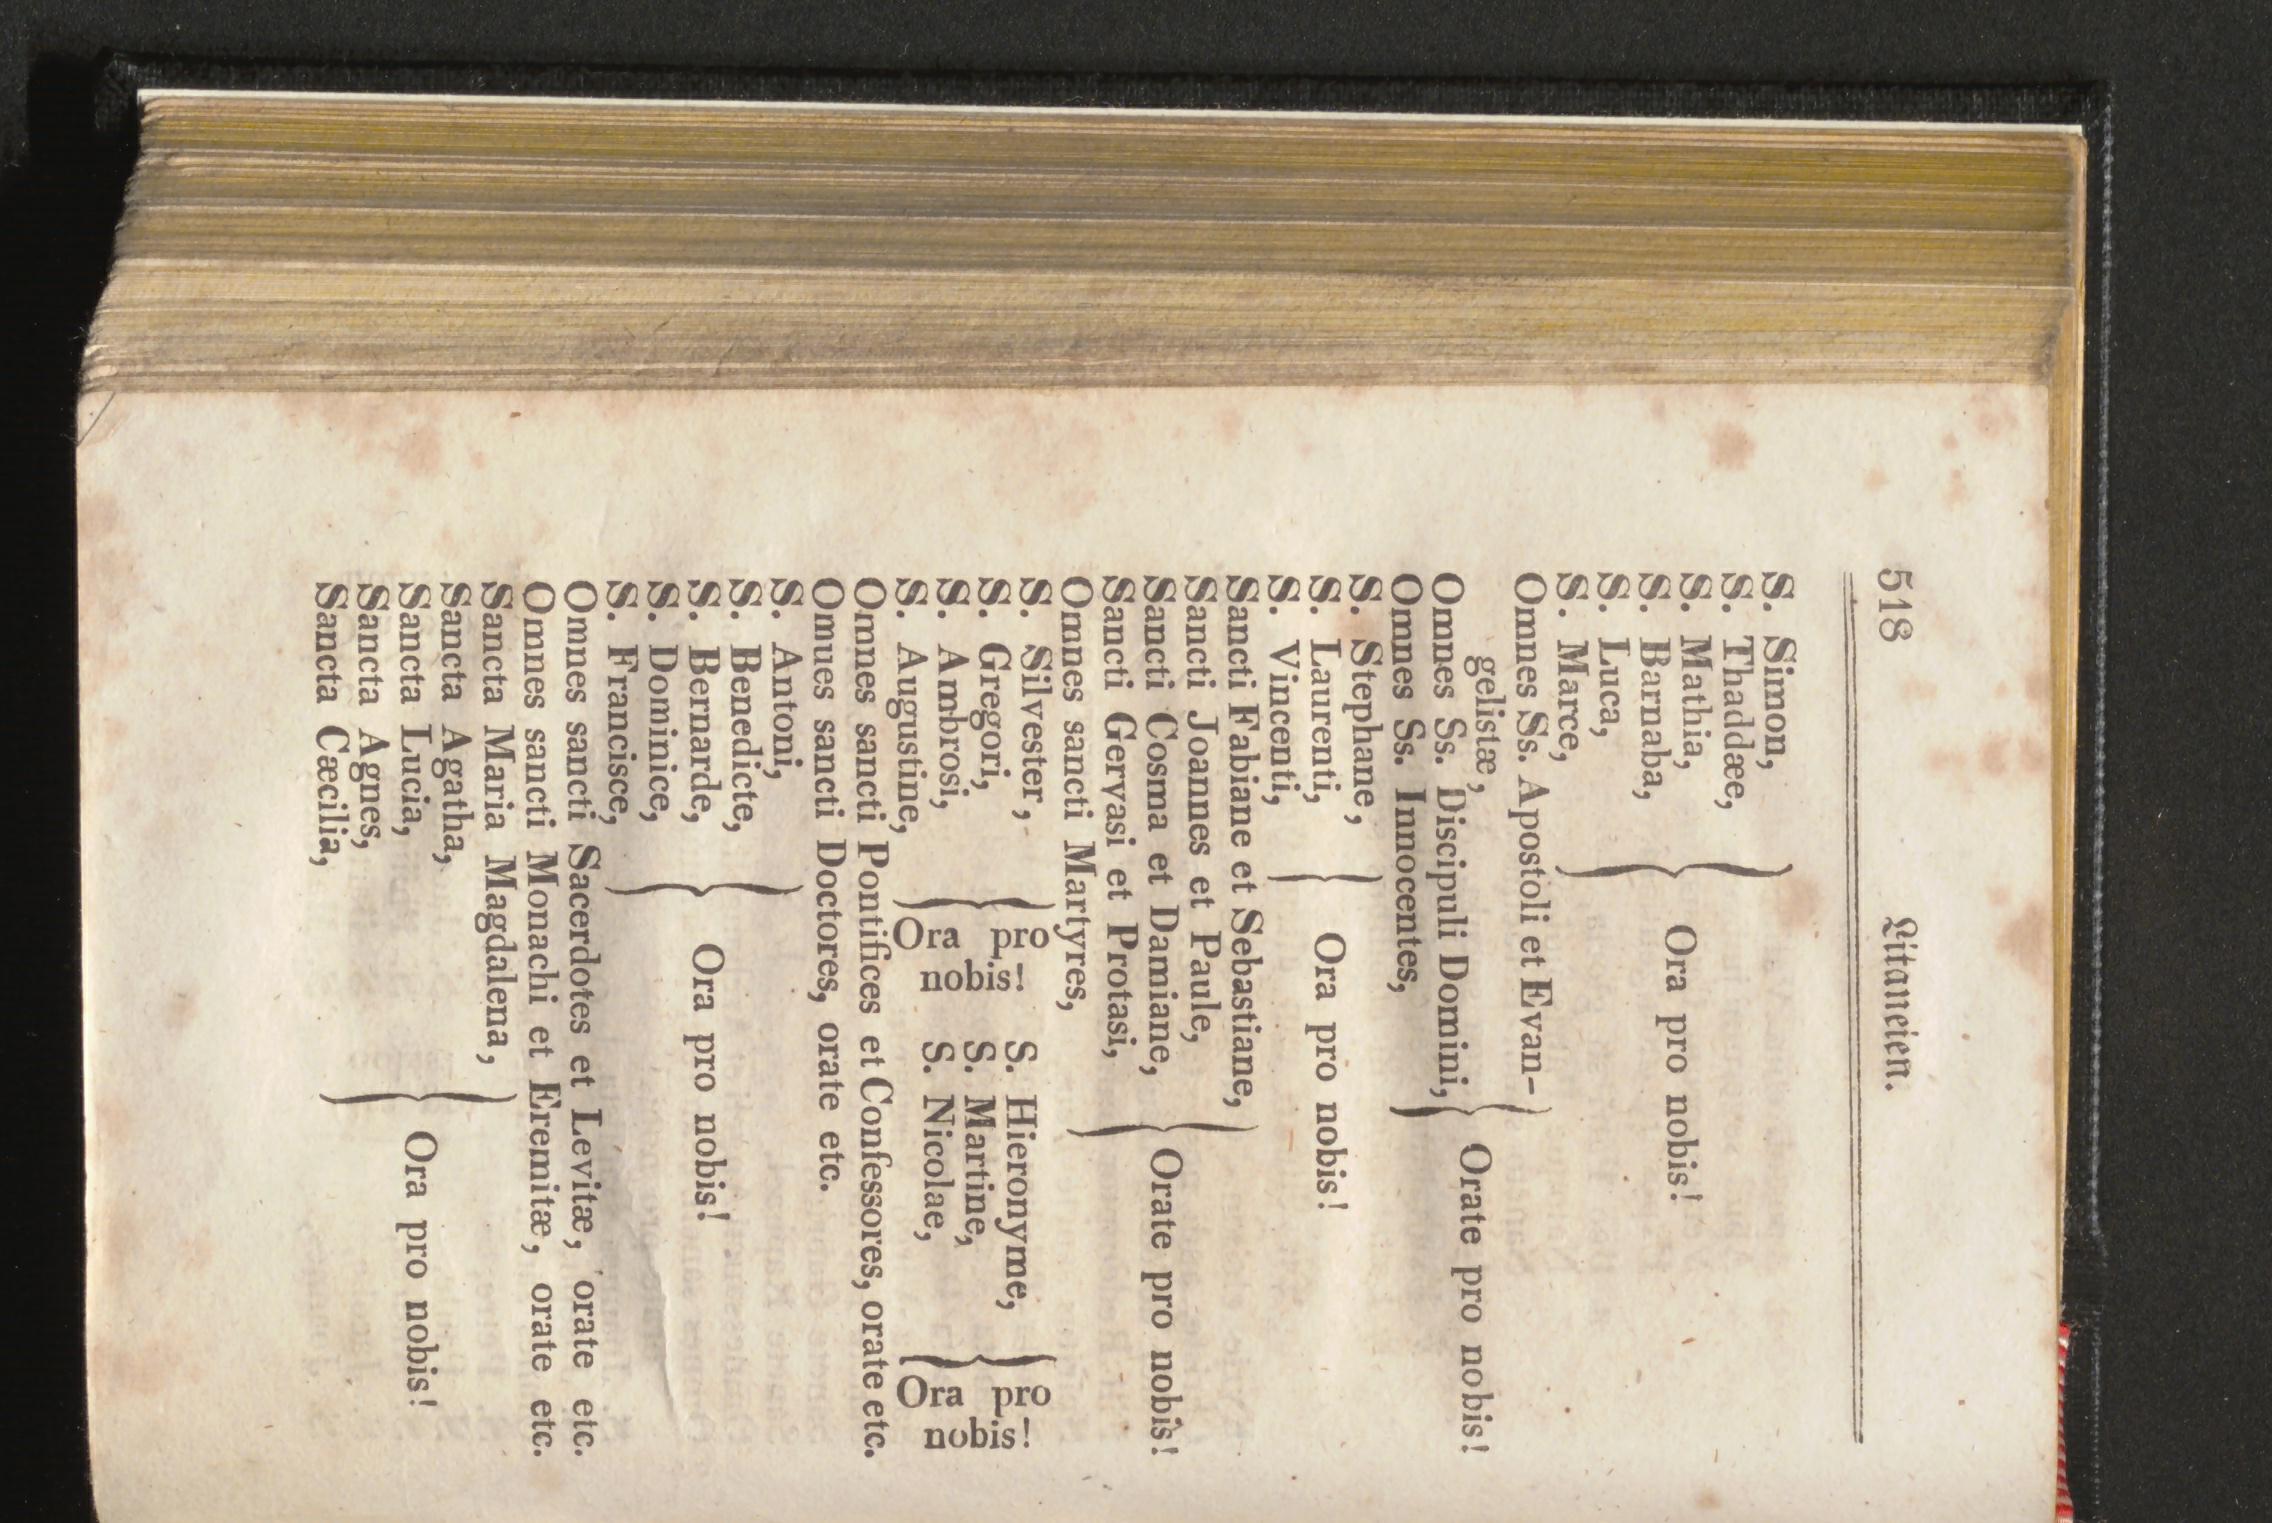 518 Litaneien.
S. Simon,
S. Thaddæe,
S. Mathia,
S. Barnaba,
S. Luca,
S. Marce,
Ora pro nobis!
Omnes Ss. Apostoli et Evan-
gelistæ,
Omnes Ss. Discipuli Domini,
Omnes Ss. Innocentes,
Orate pro nobis!
S. Stephane,
S. Laurenti,
S. Vincenti,
Ora pro nobis!
Sancti Fabiane et Sebastiane,
Sancti Joannes et Paule,
Sancti Cosma et Damiane,
Sancti Gervasi et Protasi,
Omnes sancti Martyres,
Orate pro nobis!
S. Silvester,
S. Gregori,
S. Ambrosi,
S. Augustine,
Ora pro
nobis!
S. Hieronyme,
S. Martine,
S. Nicolae,
Ora pro
nobis!
Omnes sancti Pontifices et Confessores, orate etc.
Omues sancti Doctores, orate etc.
S. Antoni,
S. Benedicte,
S. Bernarde,
S. Dominice,
S. Francisce,
Ora pro nobis!
Omnes sancti Sacerdotes et Levitæ, orate etc.
Omnes sancti Monachi et Eremitæ, orate etc.
Sancta Maria Magdalena,
Sancta Agatha,
Sancta Lucia,
Sancta Agnes,
Sancta Cæcilia,
Ora pro nobis!